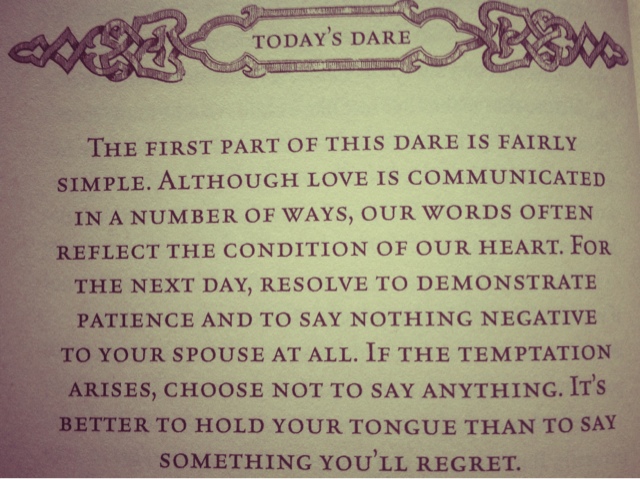 TODAY'S DARE
THE FIRST PART OF THIS DARE IS FAIRLY
SIMPLE. ALTHOUGH LOVE IS COMMUNICATED
IN A NUMBER OF WAYS, OUR WORDS OFTEN
REFLECT THE CONDITION OF OUR HEART. FOR
THE NEXT DAY, RESOLVE TO DEMONSTRATE
PATIENCE AND TO SAY NOTHING NEGATIVE
TO YOUR SPOUSE AT ALL. IF THE TEMPTATION
ARISES, CHOOSE NOT TO SAY ANYTHING. IT'S
BETTER TO HOLD YOUR TONGUE THAN TO SAY
SOMETHING YOU'LL REGRET.